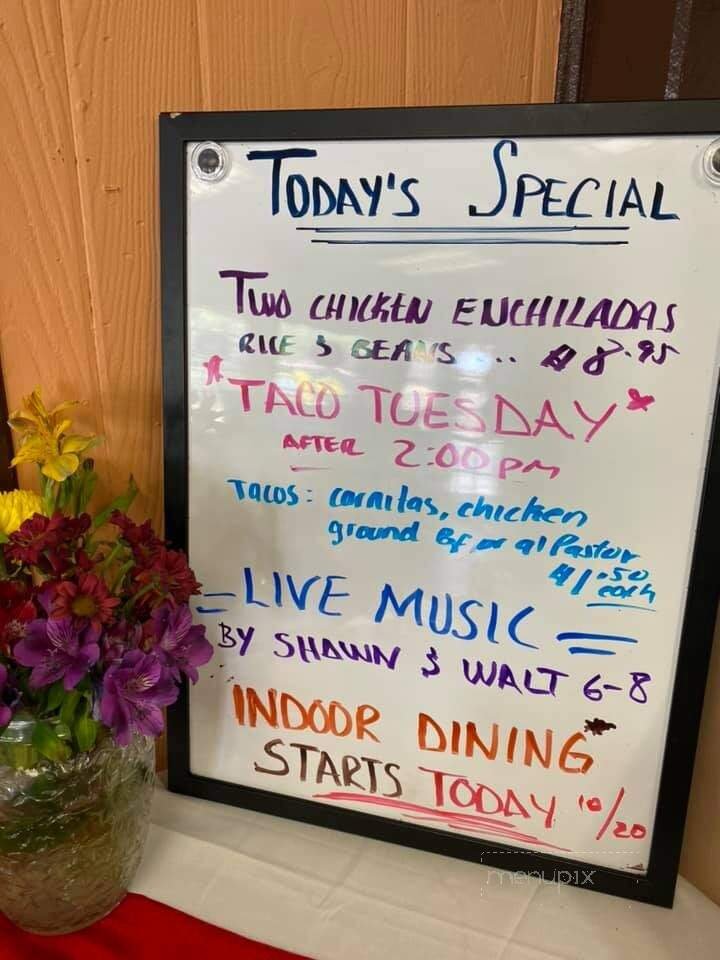 TODAY'S SPECIAL
TWO CHICKEN ENCHILADAS
RICE & BEANS ... $8.95
*TACO TUESDAY*
AFTER 2:00 PM
TACOS: carnitas, chicken
ground Bf, or al Pastor
$1.50
each
= LIVE MUSIC =
BY SHAWN & WALT 6-8
INDOOR DINING*
STARTS TODAY 10/20
menupix